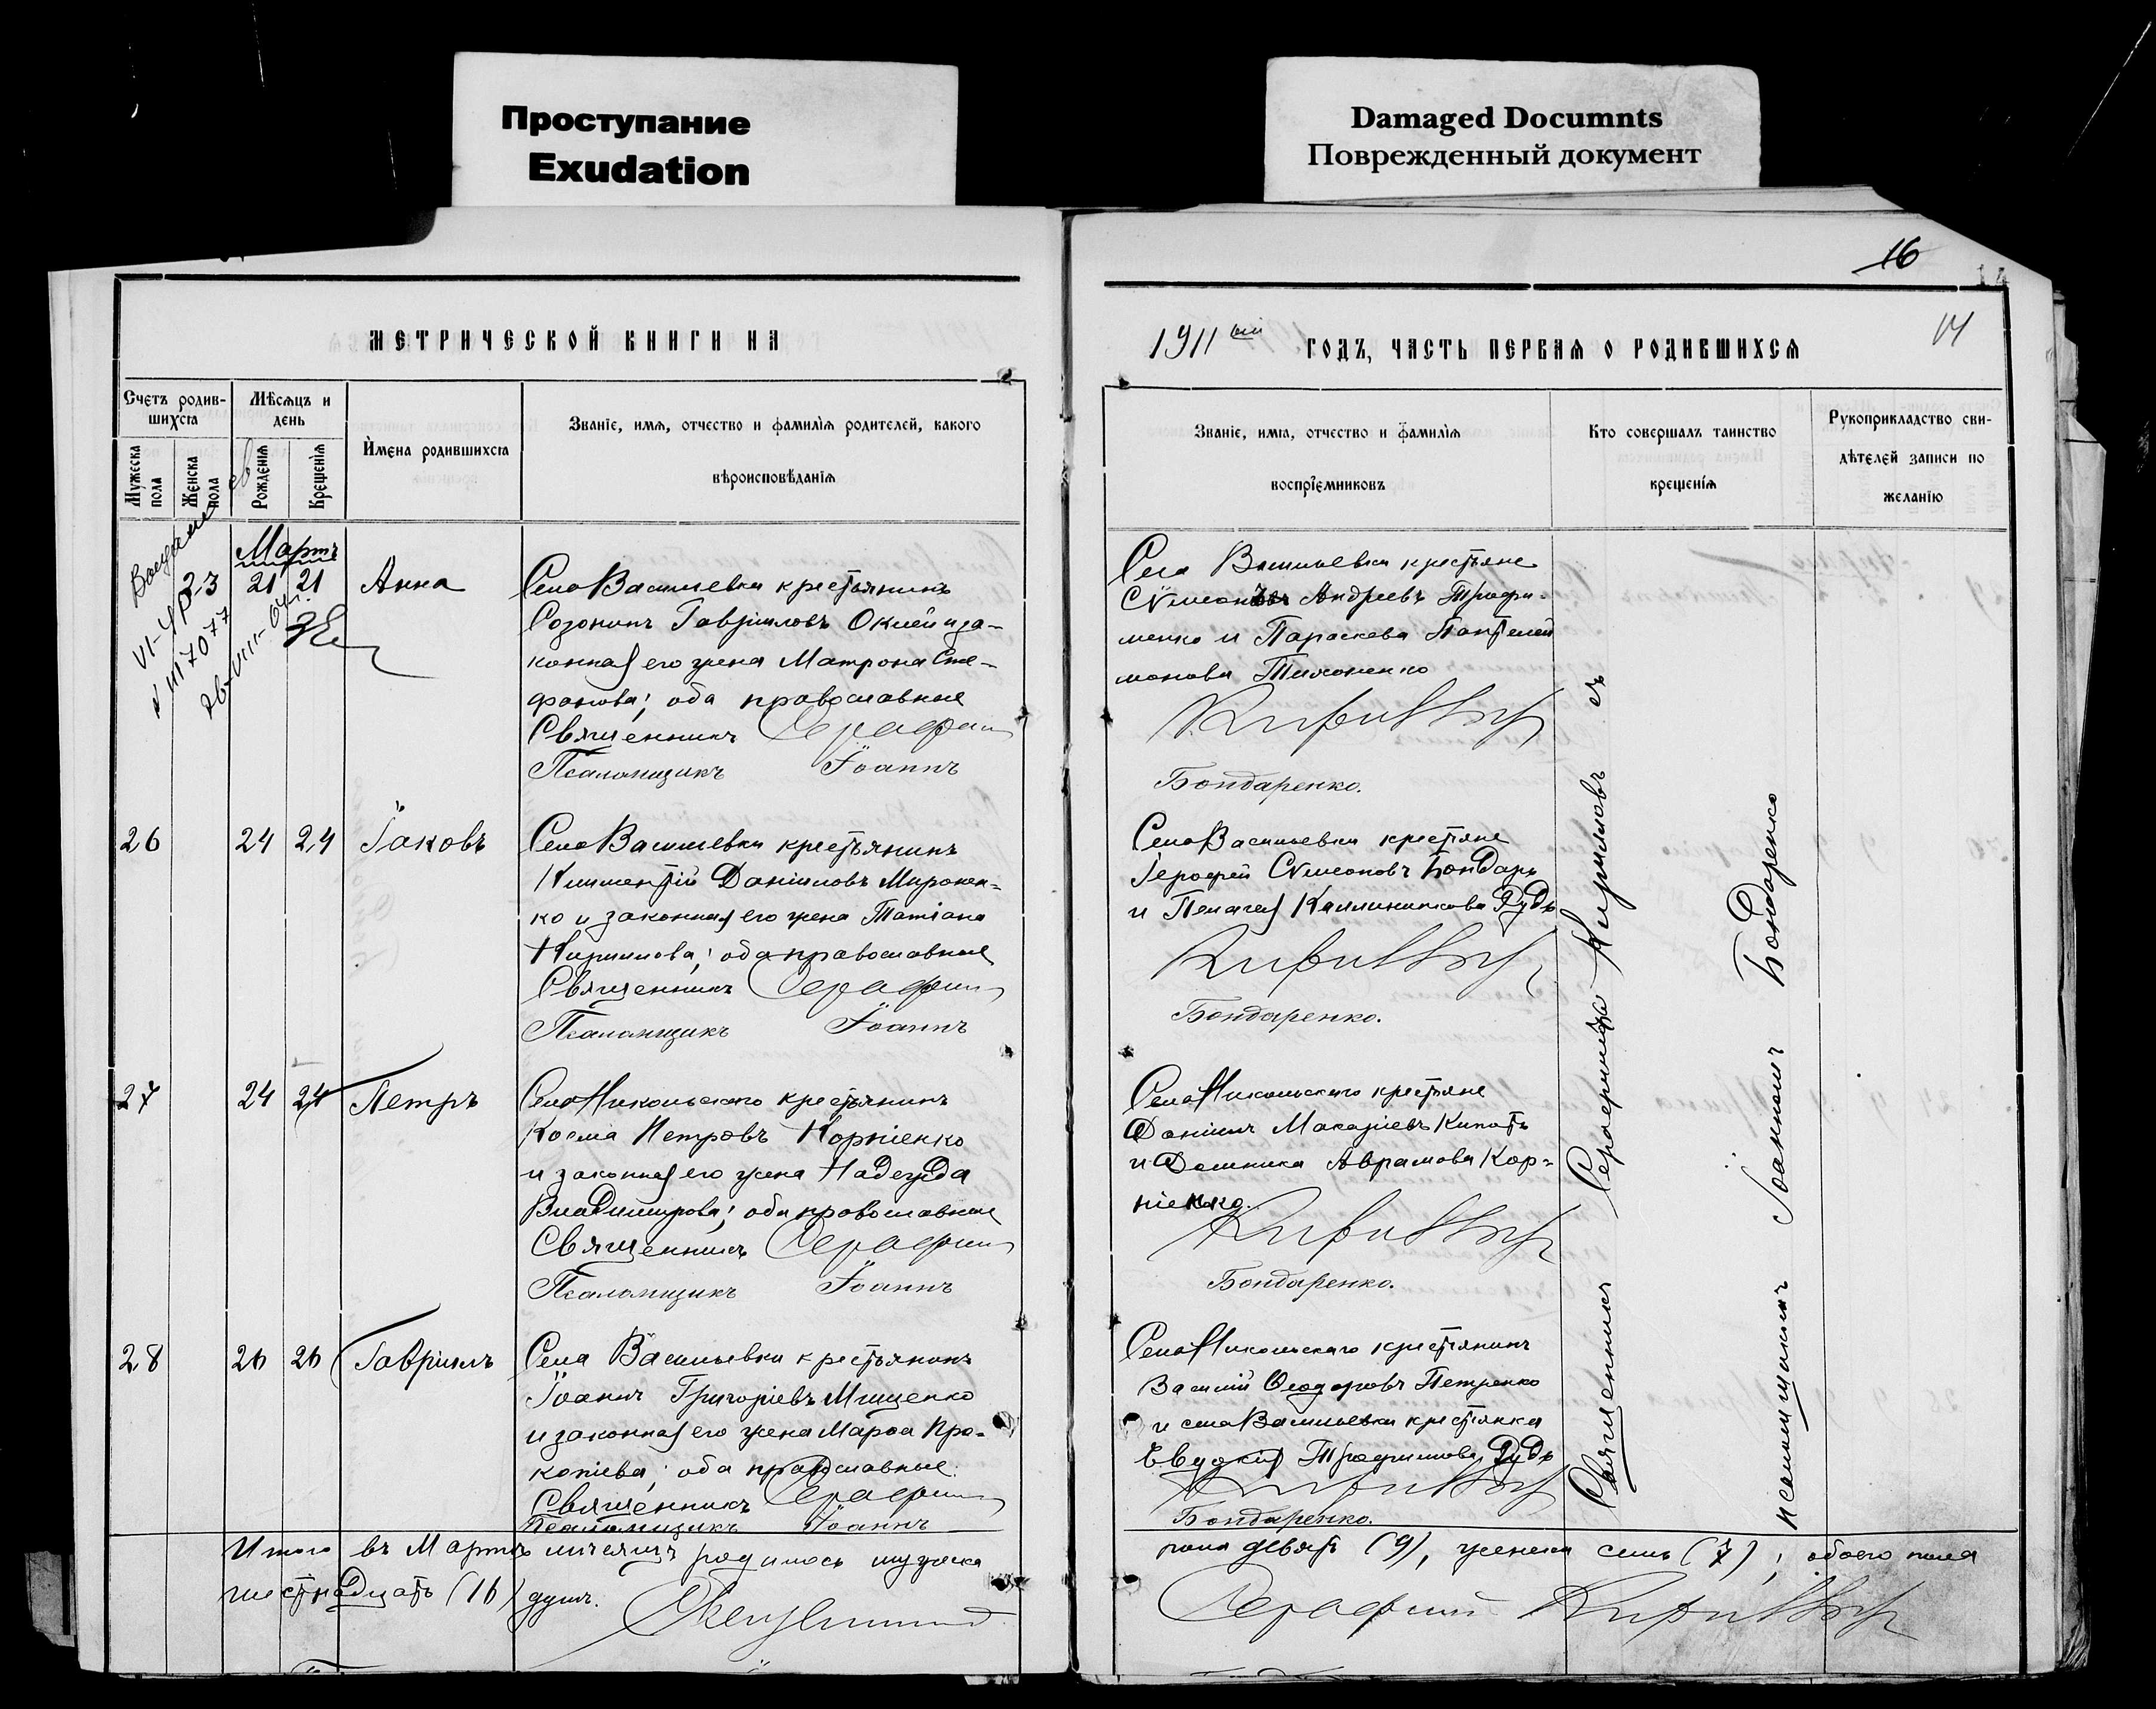 Проступание
Exudation
Damaged Documnts
Поврежденный документ
16
14
МЕТРИЧЕСКОЙ КНИГИ НА
1911 ый ГОДЪ, ЧАСТЬ ПЕРВАЯ О РОДИВШИХСЯ
Счетъ родив-
шихся
Мѣсяцъ и
день
Мужеска
пола
Женска
пола
Рожденія
Крещенія
Имена родившихся
Званіе, имя, отчество и фамилія родителей, какого
вѣроисповѣданія
Званіе, имя, отчество и фамилія
воспріемниковъ
Кто совершалъ таинство
крещенія
Рукоприкладство сви-
дѣтелей записи по
желанію
Мартъ
23 21 21 Анна
Села Васильевки крестьянинъ
Созонтъ Гавріиловъ и за-
конная его жена Матрона Сте-
фанова; оба православные
Священникъ Серафим
Псаломщикъ Іоаннъ
Села Васильевки крестьяне
Сѵмеонъ Андреевъ Трофи-
менко и Параскева Пантелей
монова Тимоненко
Кириллов
Бондаренко.
26 24 24 Іаковъ
Села Васильевки крестьянинъ
Климентій Даніиловъ Миронен-
ко и законная его жена Татіана
Кириллова; оба православные
Священникъ Серафим
Псаломщикъ Іоаннъ
Села Васильевки крестьяне
Іерофей Сѵмеоновъ Бондарь
и Пелагея Каллиникова Рудь
Кириллов
Бондаренко.
27 24 24 Петръ
Села Никольскаго крестьянинъ
Косма Петровъ Корніенко
и законная его жена Надежда
Владимирова; оба православные
Священникъ Серафим
Псаломщикъ Іоаннъ
Села Никольскаго крестьяне
Даніилъ Макаріевъ
и Домника Аврамова Кор-
ніенко.
Кириллов
Бондаренко.
28 26 26 Гавріилъ
Села Васильевки крестьянинъ
Іоаннъ Григоріевъ Мищенко
и законная его жена Марѳа Про-
копіева; оба православные.
Священникъ Серафим
Псаломщикъ Іоаннъ
Села Никольскаго крестьянинъ
Василій Ѳеодоровъ Петренко
и села Васильевки крестьянка
Евдокія Трофимова Рудь
Кириллов
Бондаренко.
Священникъ Серафимъ Кирилловъ съ
псаломщикомъ Іоанномъ Бондаренко
Итого въ Мартѣ мѣсяцѣ родилось мужеска
пола девять (9), женска семь (7); обоего пола
шестнадцать (16) душъ.
Священник Серафим Кириллов